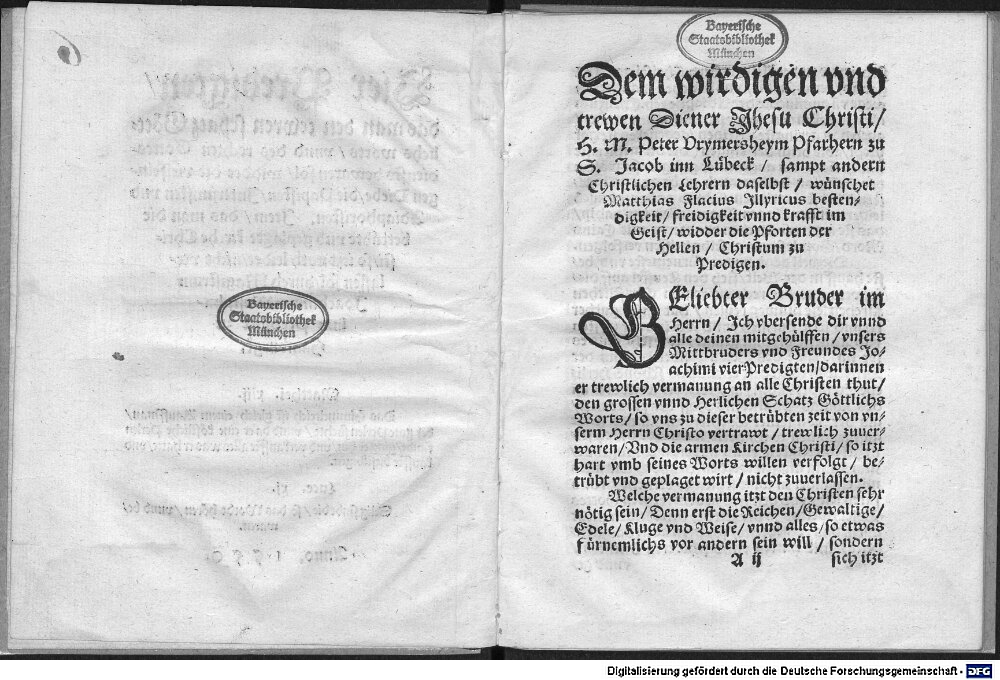 Bayerische
Staatsbibliothek
München
Bayerische
Staatsbibliothek
München
Dem wirdigen vnd
trewen Diener Jhesu Christi/
H. M. Peter Vrymersheym Pfarhern zu
S. Jacob inn Lübeck / sampt andern
Christlichen Lehrern daselbst / wünschet
Matthias Flacius Illyricus besten-
digkeit / freidigkeit vnnd krafft im
Geist / widder die Pforten der
Hellen / Christum zu
Predigen.
GEliebter Bruder im
Herrn / Ich vbersende dir vnnd
alle deinen mitgehülffen / vnsers
Mittbruders vnd Freundes Jo-
achimi vier Predigten / darinnen
er trewlich vermanung an alle Christen thut/
den grossen vnnd Herlichen Schatz Göttlichs
Worts / so vns zu dieser betrübten zeit von vn-
serm Herrn Christo vertrawt / trewlich zuuer-
waren / Vnd die armen Kirchen Christi / so itzt
hart vmb seines Worts willen verfolgt / be-
trübt vnd geplaget wirt / nicht zuuerlassen.
Welche vermanung itzt den Christen sehr
nötig sein / Denn erst die Reichen / Gewaltige /
Edele / Kluge vnd Weise / vnnd alles / so etwas
fürnemlichs vor andern sein will / sondern
A ij sich itzt
Digitalisierung gefördert durch die Deutsche Forschungsgemeinschaft - DFG